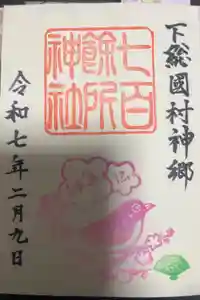 下総國村神郷
七百
餘所
神社
令和七年二月九日